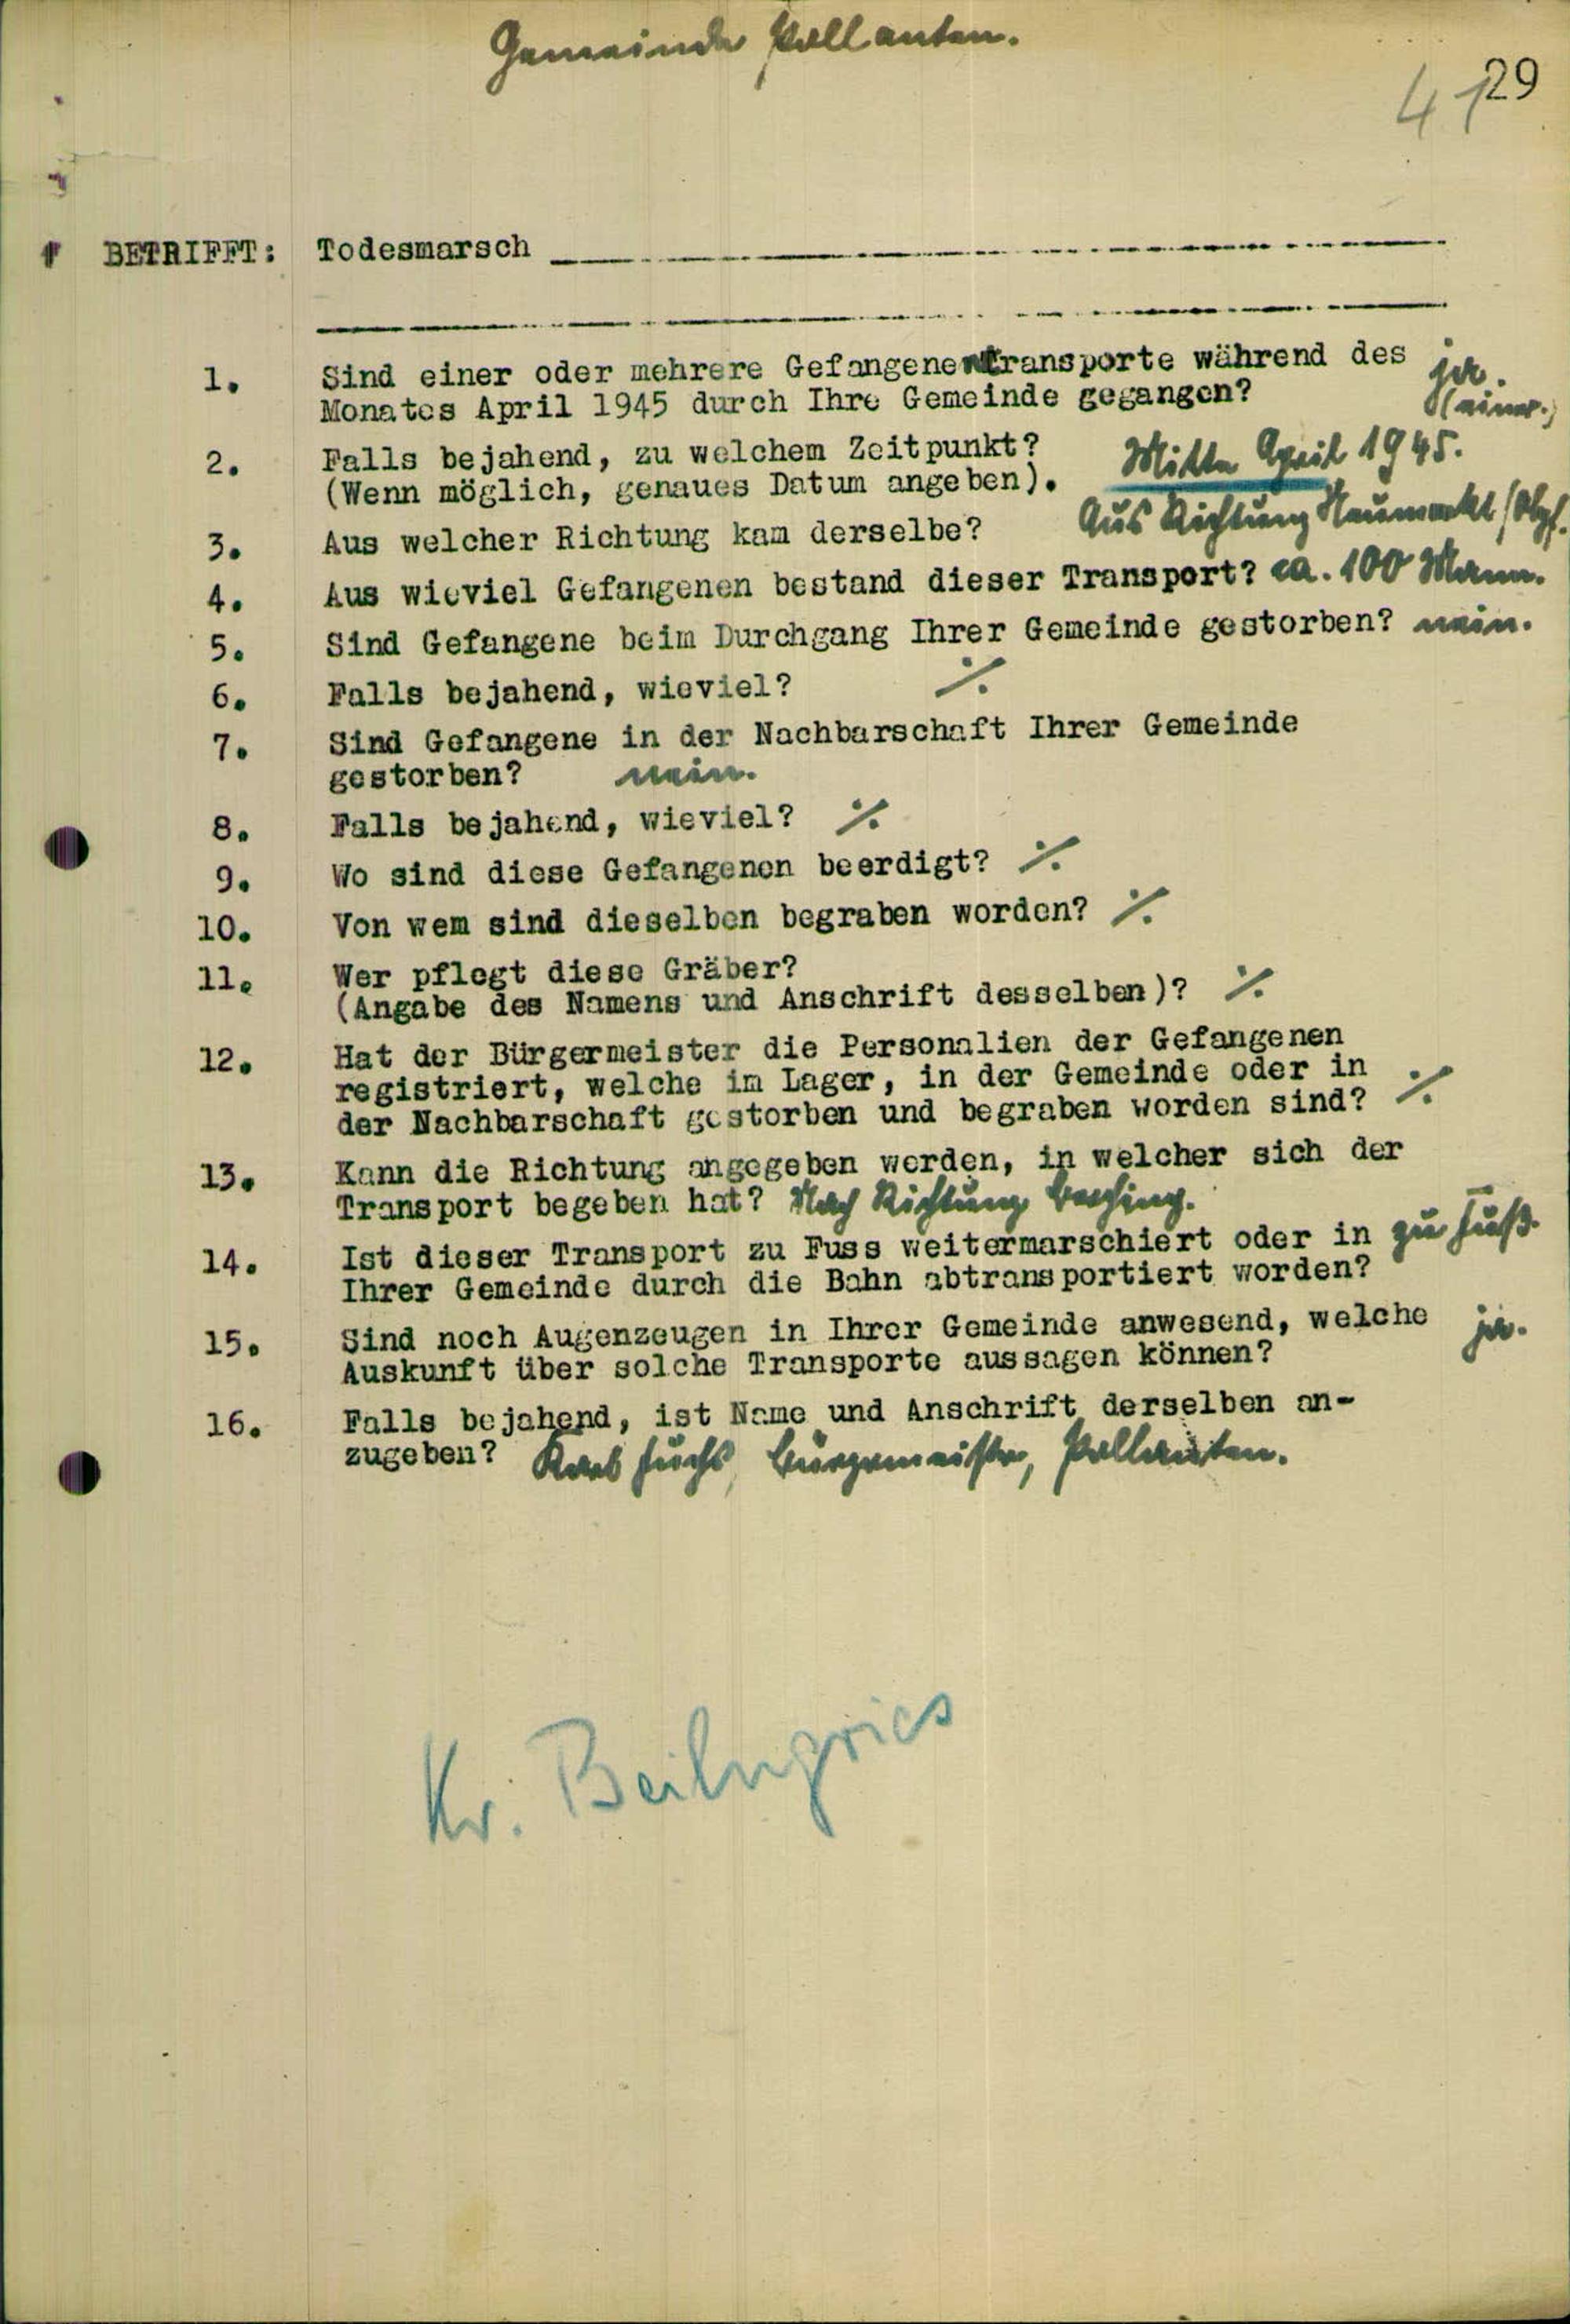 Gemeinde Pollanten.
41 29
BETRIFFT: Todesmarsch
1. Sind einer oder mehrere Gefangenentransporte während des ja.
Monates April 1945 durch Ihre Gemeinde gegangen? (einer.)
2. Falls bejahend, zu welchem Zeitpunkt? Mitte April 1945.
(Wenn möglich, genaues Datum angeben).
3. Aus welcher Richtung kam derselbe? Aus Richtung Neumarkt/Obpf.
4. Aus wieviel Gefangenen bestand dieser Transport? ca. 100 Mann.
5. Sind Gefangene beim Durchgang Ihrer Gemeinde gestorben? nein.
6. Falls bejahend, wieviel? ·/.
7. Sind Gefangene in der Nachbarschaft Ihrer Gemeinde
gestorben? nein.
8. Falls bejahend, wieviel? ·/.
9. Wo sind diese Gefangenen beerdigt? ·/.
10. Von wem sind dieselben begraben worden? ·/.
11. Wer pflegt diese Gräber?
(Angabe des Namens und Anschrift desselben)? ·/.
12. Hat der Bürgermeister die Personalien der Gefangenen
registriert, welche im Lager, in der Gemeinde oder in
der Nachbarschaft gestorben und begraben worden sind? ·/.
13. Kann die Richtung angegeben werden, in welcher sich der
Transport begeben hat? Nach Richtung Berching.
14. Ist dieser Transport zu Fuss weitermarschiert oder in zu Fuß.
Ihrer Gemeinde durch die Bahn abtransportiert worden?
15. Sind noch Augenzeugen in Ihrer Gemeinde anwesend, welche ja.
Auskunft über solche Transporte aussagen können?
16. Falls bejahend, ist Name und Anschrift derselben an-
zugeben? Karl Fuchs, Bürgermeister, Pollanten.
Kr. Beilngries